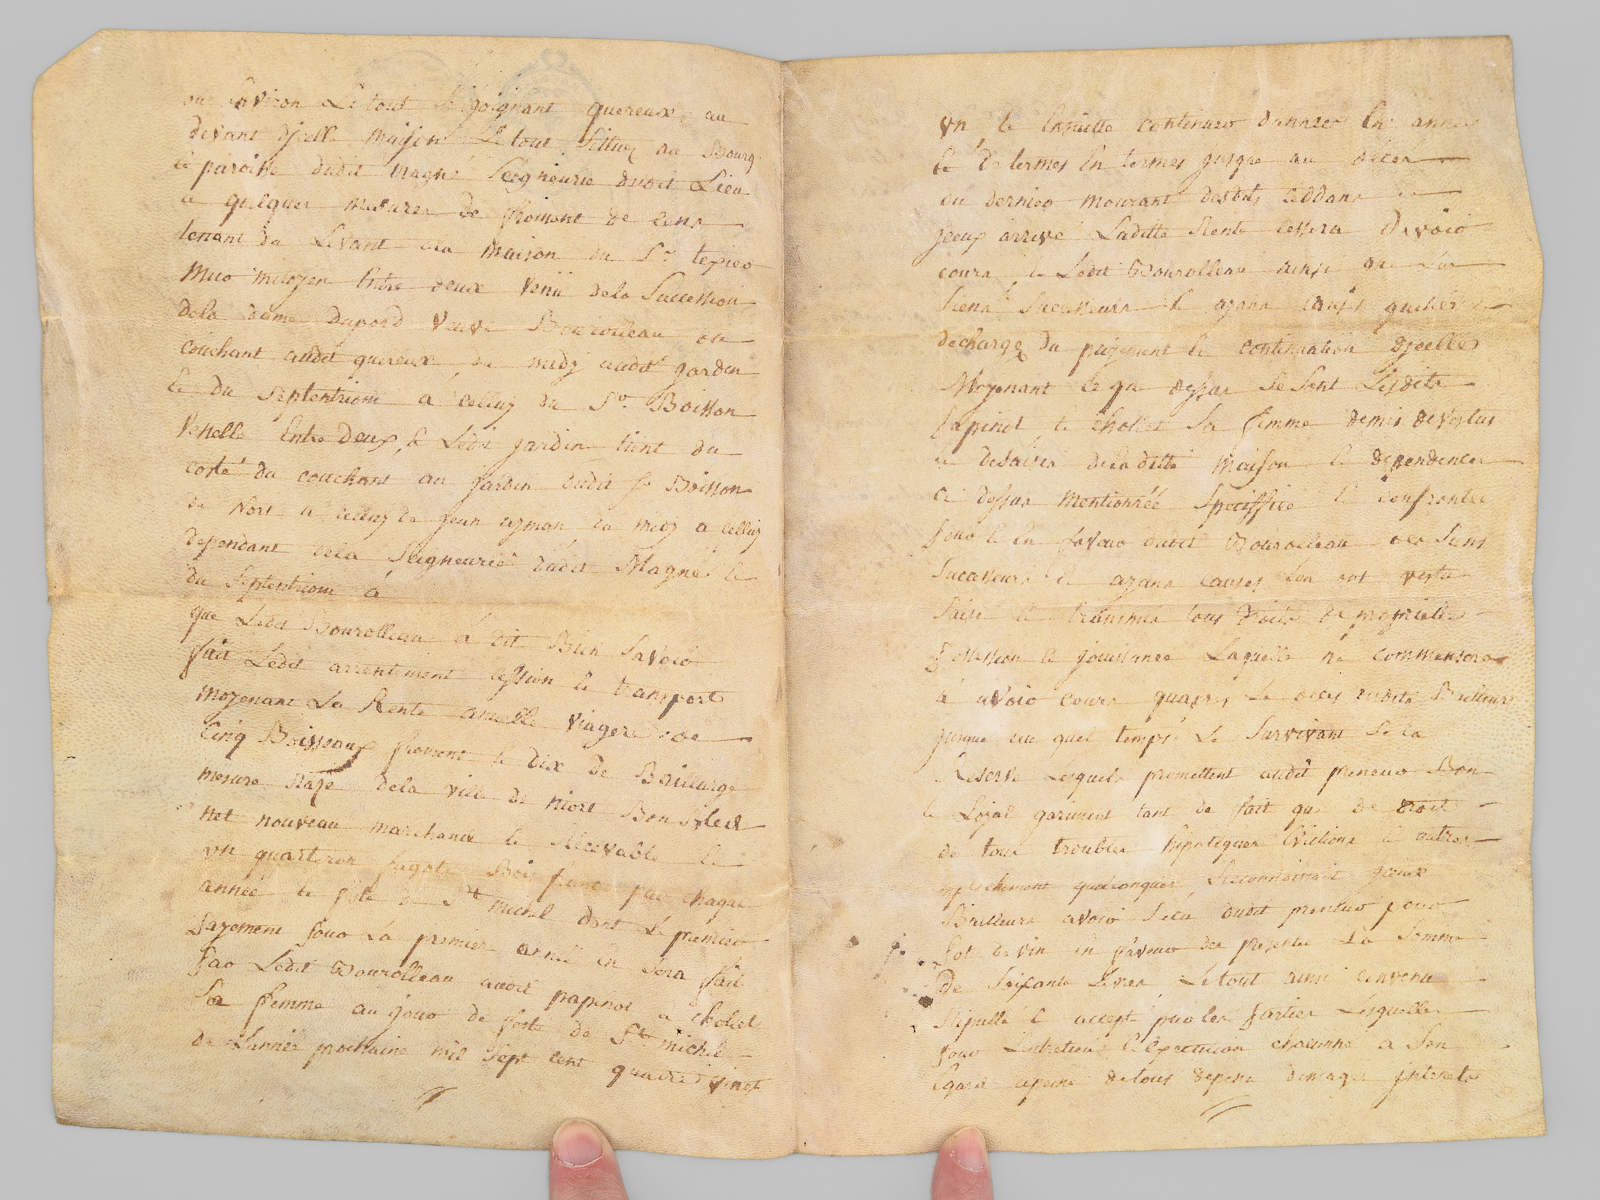 ou Environ Le tout Se joignant quereux au
devant djcelle maison Le tout Sittué au Bourg
et paroisse dudit Magné Seigneurie dudit Lieu
a quelques mesures de froment de cens
tenant du Levant a la maison du Sr. texier
mur mitoyen Entre deux venu dela Succession
dela dame dupord veuve Bourolleau du
couchant audit quereux, du midy audit jardin
Et du septentrion a celluy du Sr. Boisson
venelle Entre deux, & Ledit jardin tient du
costé du couchant au jardin dudit Sr Boisson
du Nort a celluy de jean aymon du midy a celluy
dependant dela Seigneurie dudit Magné Et
du Septentrion a
que Ledit Bourolleau a dit Bien Savoir
fait Ledit arrentement cession Et transport
moyenant La Rente anuelle viagere de
Cinq Boisseaux froment & dix de Baillarge
mesure Raze dela ville de niort Bon Bled
net nouveau marchand & Recevable &
un quarteron fagots Bois franc par chaque
année Et feste de St michel dont Le premier
payement pour La premier année En sera fait
par Ledit Bourolleau audit papinot & chollet
Sa femme au jour de feste de St michel
de Lannée prochaine mil Sept cent quatre vingt
un, & Ensuitte continuer dannée En année
Et de termes En termes jusque au déces
du dernier mourant desdits ceddans
jceux arrivé Laditte Rente cessera Davoir
cours & Ledit Bourolleau ainsi que Les
Siens Successeurs & ayans causes quittes
dechargé du payement & continuation djcelle
Moyenant ce que dessus Se Sont Lesdits
Papinot & chollet Sa femme demis devestus
& desaisis deladitte maison & dependences
Ci dessus mentionnée Speciffiée & confrontée
pour & En faveur dudit Bourolleau des Siens
Sucesseurs & ayans causes Len ont vestu
Saisi & transmis tous droits de propriete
possession & jouissance Laquelle ne commencera
á avoir cours quaprés Le déces desdits Bailleurs
jusque au quel temps Le Survivant Se la
Reserve Lesquels promettent audit preneur Bon
& Loyal gariment tant de fait que de droit
de tous troubles hipoteques Evictions & autres
empêchement quelconques, Reconnoissant jceux
Bailleurs avoir Recu dudit preneur pour
Pot de vin en faveur des presentes La Somme
De Soixante Livres, Le tout ainsi convenu
Stipullé & accepté par les parties Lesquelles
pour Lentretien & Execution chacunne a Son
Egard a peine de tous depens domages jnterets